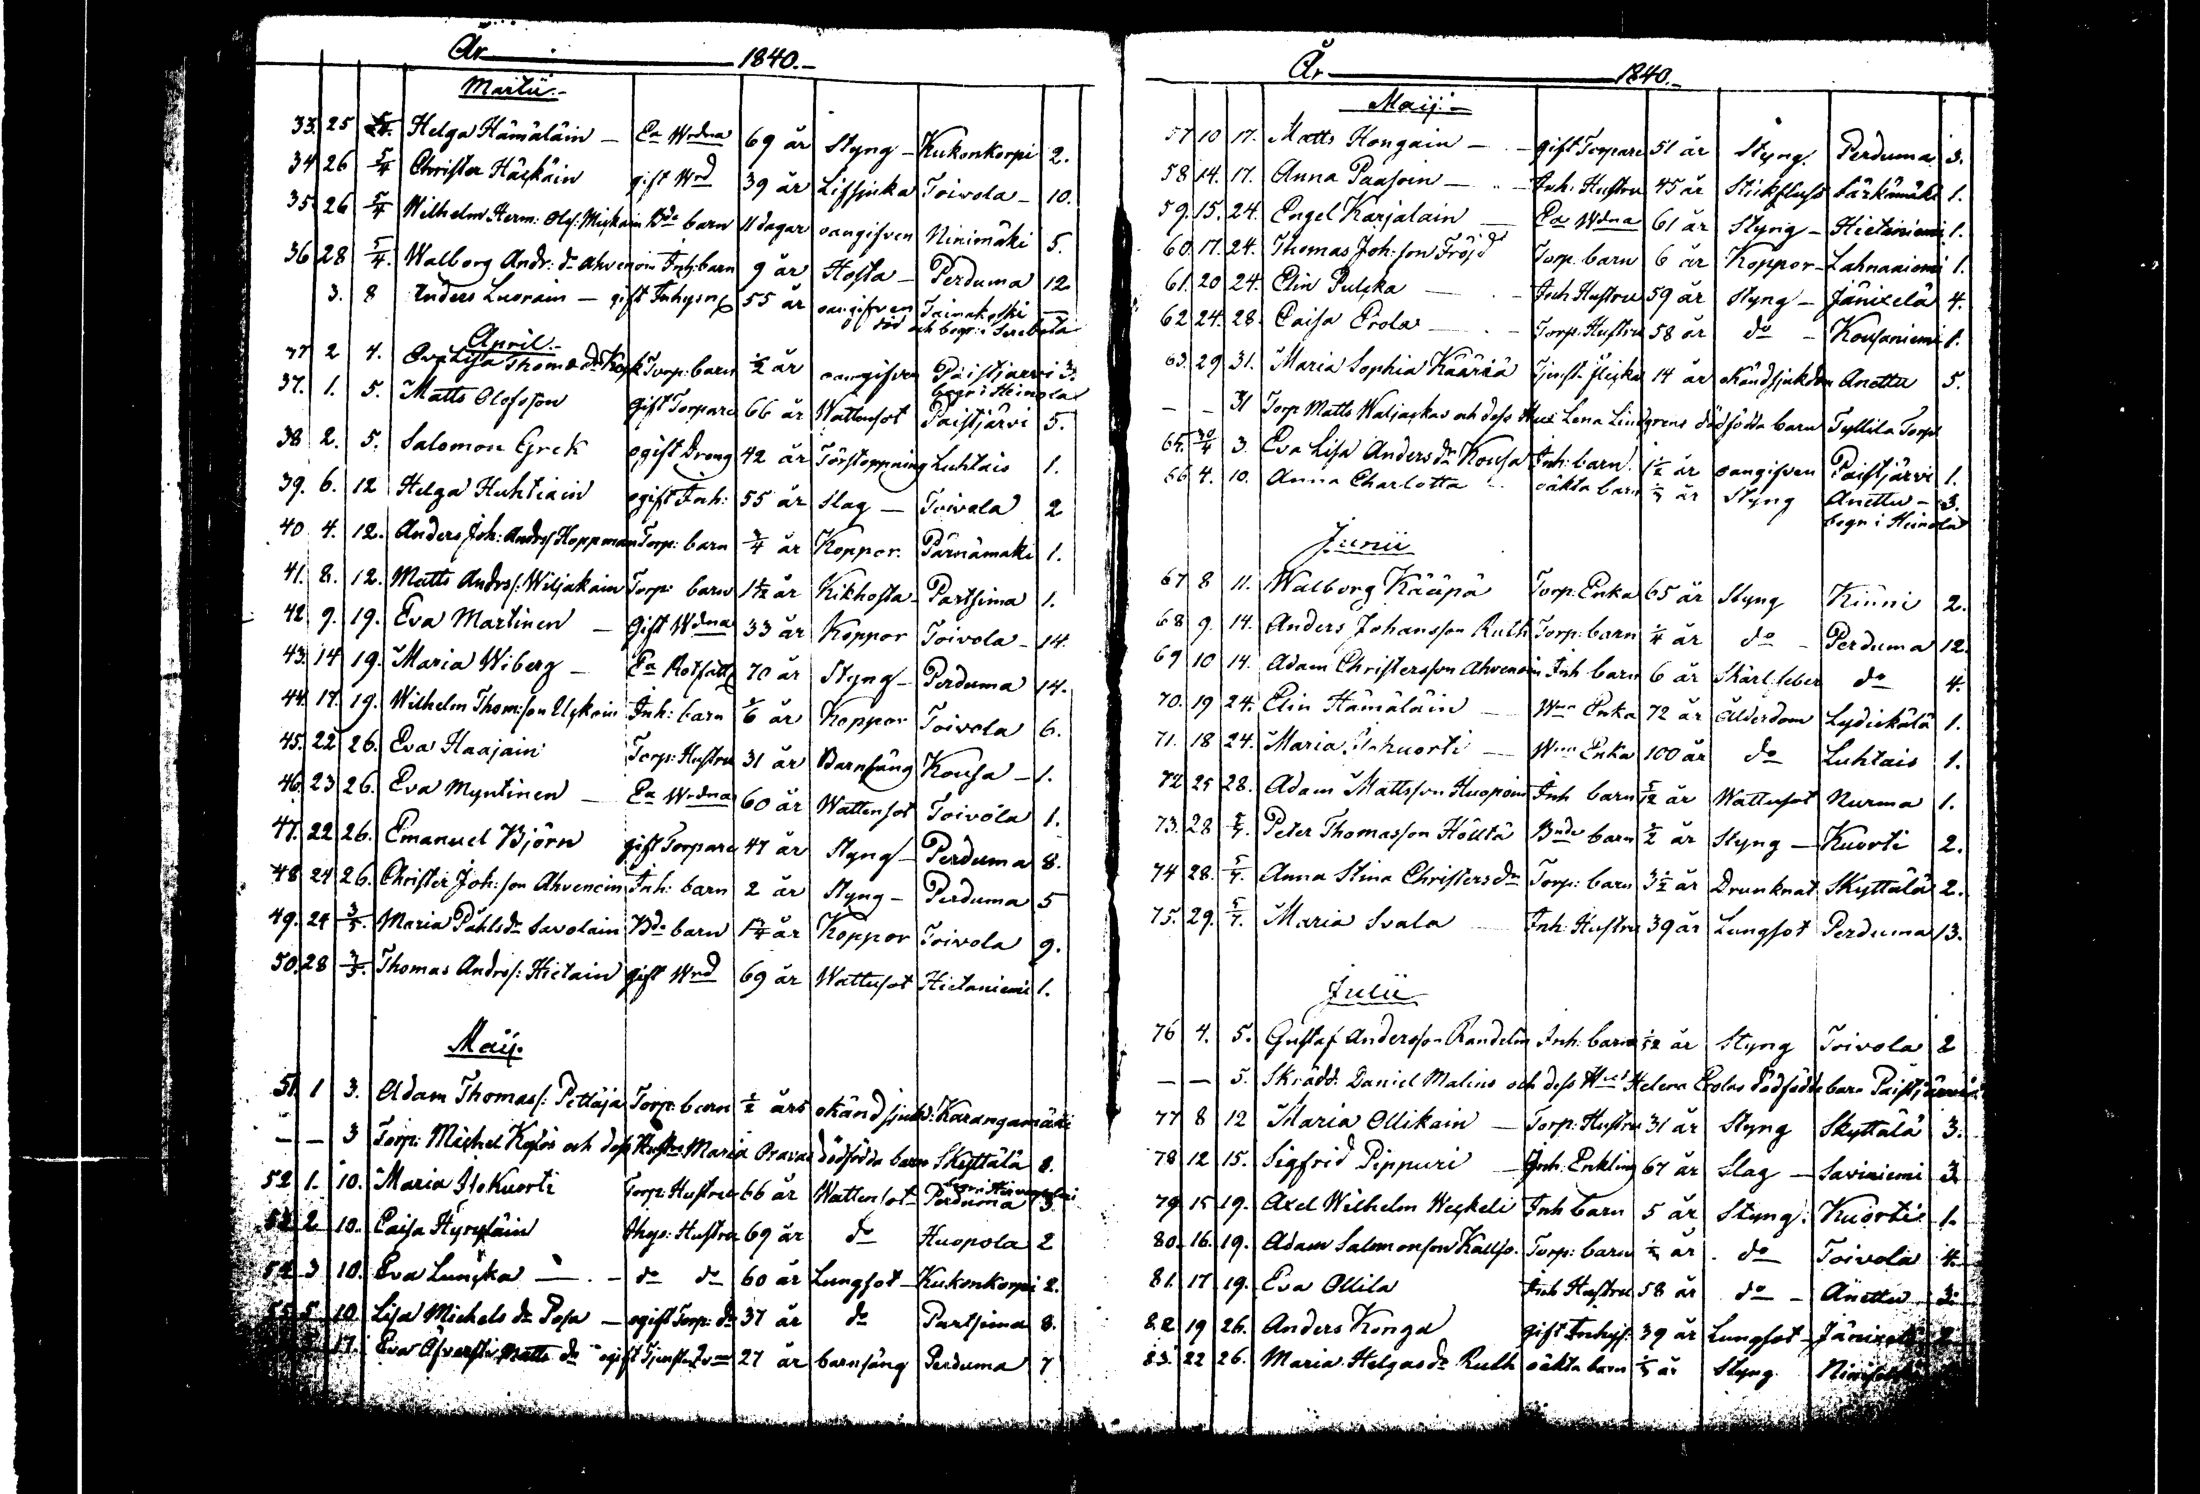 År 1840.
Martii
33. 25 5/4. Helga Hämäläin — Ea Wrdna 69 år Styng — Kukonkorpi 2.
34 26 5/4 Christer Häskäin gift Wrd 39 år Lifsjuka Toivola — 10.
35. 26 5/4 Wilhelm Herm: Olofs: Bde barn 11 dagar oangifven Ninimäki 5.
36 28 5/4. Walborg Andr: dr Ahvenoin Inh: barn 9 år Hosta — Perduma 12
3. 8 Anders Luorain — gift Inhysn 55 år oangifven
död och begr: i
April.
37 2 4. Eva Lisa Thomæ dr Torp: barn 1/2 år oangifven Paistjärvi 3.
begr i Heinola
37. 1. 5. Matts Olofsson gift Torpare 66 år Wattensot Paistjärvi 5.
38 2. 5. Salomon Grek ogift Dreng 42 år Förstoppning Luhtais 1.
39. 6. 12 Helga Huhtiain ogift Inh: 55 år Slag — Toivola 2
40 4. 12. Anders Joh: Andrs Hoppman Torp: barn 3/4 år Koppor. Pärnämäki 1.
41. 8. 12. Matts Andrss: Wiljakain Torp: barn 1 1/2 år Kikhosta — Partsima 1.
42. 9. 19. Eva Martinen — Gift Wdna 33 år Koppor Toivola — 14.
43. 14 19. Maria Wiberg — Ea 70 år Styng — Perduma 14.
44. 17. 19. Wilhelm Thom:son Inh: barn 1/6 år Koppor Toivola 6.
45. 22 26. Eva Haajain Torp: Hustru 31 år Barnsäng Kousa — 1.
46. 23 26. Eva Myntinen — Ea Wrdna 60 år Wattensot Toivola 1.
47. 22 26. Emanuel Björn gift Torpare 47 år Styng — Perduma 8.
48 24 26. Christer Joh:son Ahvenoin Inh: barn 2 år Styng — Perduma 5
49. 24 3/5. Maria Påhlsdr Savolain Bde barn 1 3/4 år Koppor Toivola 9.
50. 28 3/5. Thomas Andrss: Hietain gift Wrd 69 år Wattusot Hietaniemi 1.
Maij.
51. 1 3. Adam Thomass: Pettäjä Torp: barn 1/2 års okänd sjukd: Karangamäki
— — 3 Torp: Michel och dess Hustru Maria Oravas dödfödda barn Skyttälä 8.
52 1. 10. Maria IsoKuorti Torp: Hustru 66 år Wattensot — Perduma 3
53 2 10. Caisa Hyryläin Inhys: Hustru 69 år do Huopola 2
54 3 10. Eva — do do 60 år Lungsot — Kukonkorpi 2.
55 5 10. Lisa Michels dr Posa — ogift Torp: dr 37 år do Partsima 8.
17. Eva Matts dr ogift 27 år barnsäng Perduma 7
År 1840.
Maij.
57 10 17. Matts Hongain — gift Torpare 51 år Styng. Perduma 3.
58 14. 17. Anna Paasoin — Inh: Hustru 45 år Stickfluss Särkämäki 1.
59. 15. 24. Engel Karjalain — Ea Wdna 61 år Styng — Hietaniemi 1.
60. 17. 24. Thomas Joh:son Fröjd Torp: barn 6 år Koppor — Lahnaniemi 1.
61. 20 24. Elin Pulska — Inh Hustru 59 år Styng — Jänixelä 4.
62 24. 28. Caisa Erola — Torp: Hustru 58 år do — Kousaniemi 1.
63. 29 31. Maria Sophia Kääriä Tjenst. flicka 14 år okänd sjukdom Anettu 5.
— — 31 Torp Matts Waljackas och dess Hus Lena Lindgrens dödfödda barn Tyllila Torp
65. 30/4 3. Eva Lisa Anders dr Kousa Inh: barn. 1 1/2 år oangifven Paistjärvi 1.
66 4. 10. Anna Charlotta oäkta barn år Styng Anettu — 3.
begr i Heinola
Junii
67 8 11. Walborg Kääpä Torp: Enka 65 år Styng Kinni 2.
68 9. 14. Anders Johansson Ruth Torp: barn 1/4 år do — Perduma 12.
69 10 14. Adam Christersson Ahvenoin Inh barn 6 år Skarl. feber do 4.
70. 19 24. Elin Hämäläin — Wrn Enka 72 år Ålderdom Lydickälä 1.
71. 18 24. Maria — Wrn Enka 100 år do Luhtais 1.
72 25 28. Adam Mattsson Huopoin Inh barn 5/12 år Wattusot Nurma 1.
73. 28 5/7. Peter Thomasson Hölttä Bnde barn 1/2 år Styng — Kuorti 2.
74 28. 5/7. Anna Stina Christersdr Torp: barn 3 1/2 år Drunknat Skyttälä 2.
75. 29. 5/7. Maria Svala — Inh: Hustru 39 år Lungsot Perduma 13.
Julii
76 4. 5. Gustaf Andersson Randelin Inh: barn år Styng Toivola 2
— — 5. Skrädd: Daniel Malins och dess Hust Helena Erolas dödfödde barn Paistjärvi
77 8 12 Maria Ollikain — Torp: Hustru 31 år Styng Skyttälä 3.
78 12 15. Sigfrid Pippuri — Inh: Enkling 67 år Slag — Saviniemi 3
79 15 19. Axel Wilhelm Weckeli Inh barn 5 år Styng. Kuortis 1.
80. 16. 19. Adam Salomonson Torp: barn år do Toivola 4.
81. 17 19. Eva Ollila Inh Hustru 58 år do — Anettu 3.
82 19 26. Anders Konga gift Inhys: 39 år Lungsot — Jänixelä 2
83. 22 26. Maria Helgas dr Ruth oäkta barn år Styng